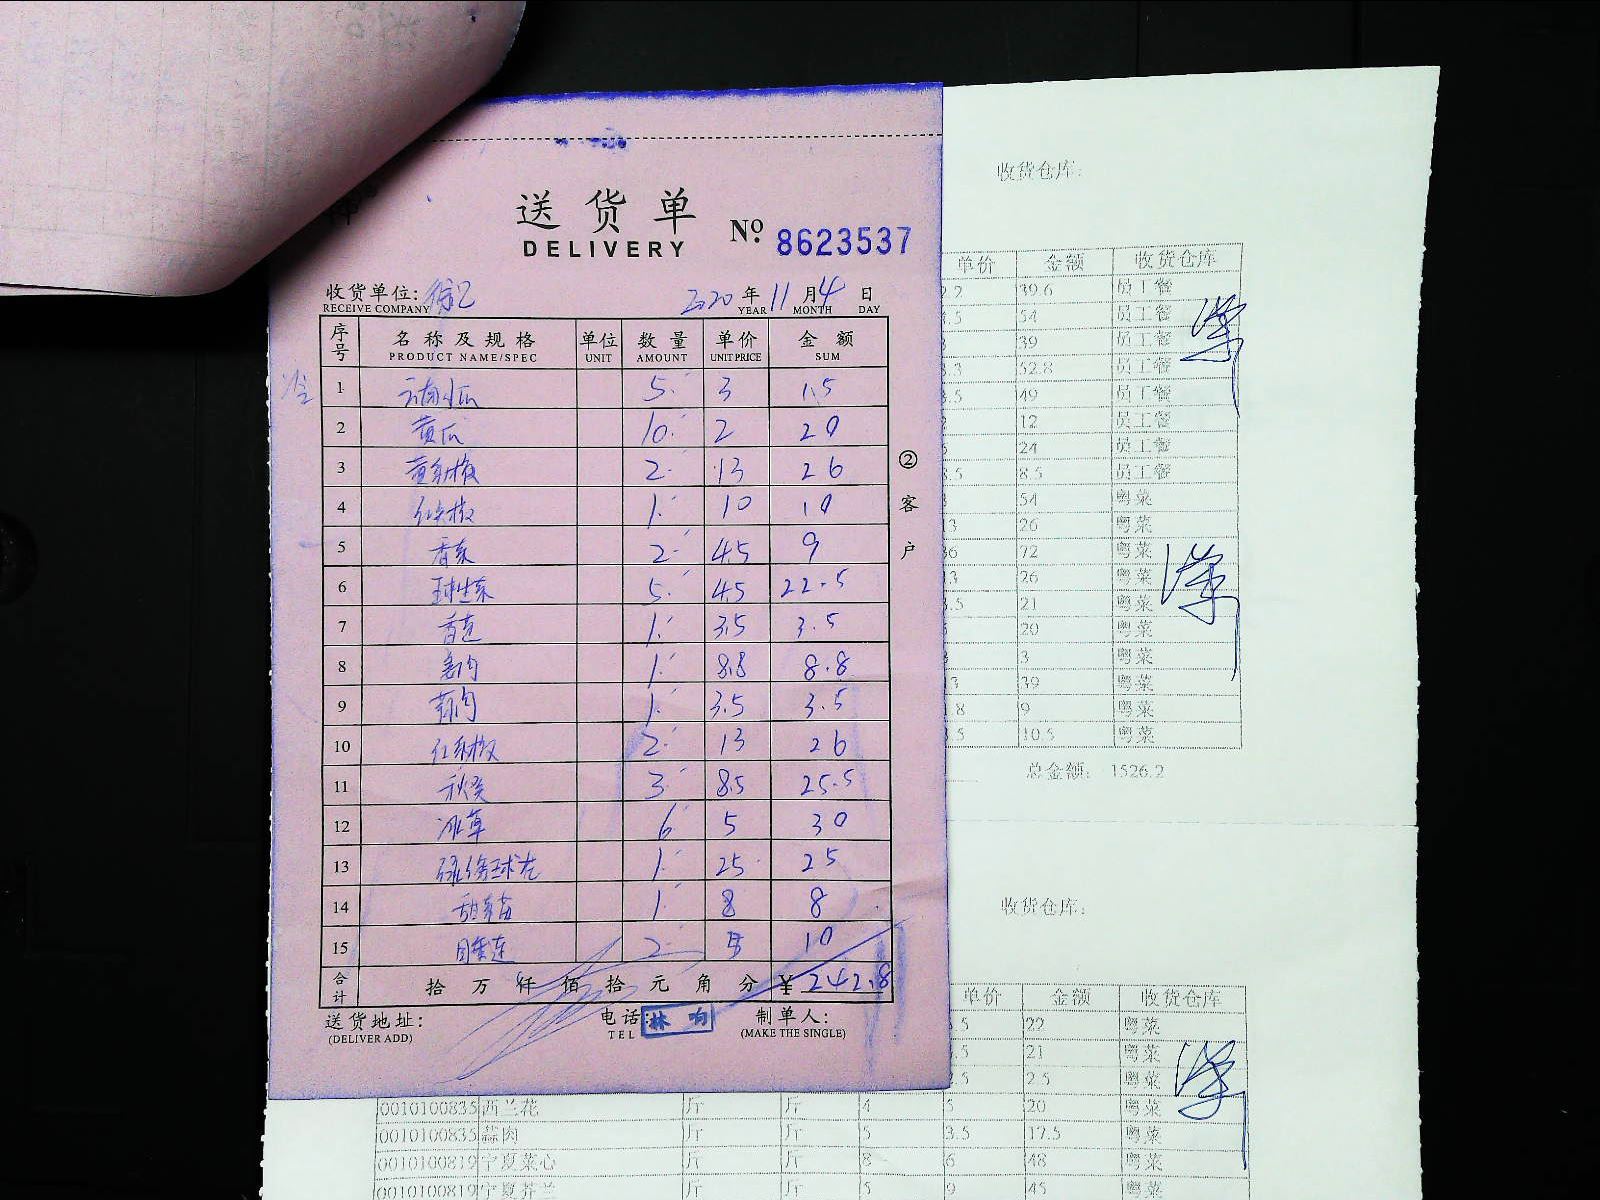 送货单
DELIVERY
No. 8623537
收货单位: 徐记 2020 年 11 月 4 日
RECEIVE COMPANY YEAR MONTH DAY
序号 名称及规格 单位 数量 单价 金额
PRODUCT NAME/SPEC UNIT AMOUNT UNIT PRICE SUM
冷
1 云南小瓜 5 3 15
2 黄瓜 10 2 20
3 黄彩椒 2 13 26
4 红尖椒 1 10 10
5 香菜 2 4.5 9
6 球生菜 5 4.5 22.5
7 3.5 3.5
8 姜肉 1 8.8 8.8
9 蒜肉 1 3.5 3.5
10 红彩椒 2 13 26
11 秋葵 3 8.5 25.5
12 冰草 6 5 30
13 1 25 25
14 1 8 8
15 2 5 10
合计 拾 万 仟 佰 拾 元 角 分 ¥ 242.8
②客户
送货地址: 电话: 林响 制单人:
(DELIVER ADD) TEL (MAKE THE SINGLE)
收货仓库:
单价 金额 收货仓库
2.2 39.6 员工餐
.5 54 员工餐
39 员工餐
.3 52.8 员工餐
.5 49 员工餐
12 员工餐
24 员工餐
.5 8.5 员工餐
54 粤菜
3 26 粤菜
36 72 粤菜
3 26 粤菜
.5 21 粤菜
20 粤菜
3 粤菜
3 39 粤菜
1.8 9 粤菜
.5 10.5 粤菜
总金额: 1526.2
收货仓库:
单价 金额 收货仓库
.5 22 粤菜
.5 21 粤菜
2.5 2.5 粤菜
0010100835 西兰花 斤 斤 4 5 20 粤菜
0010100835 蒜肉 斤 斤 5 3.5 17.5 粤菜
0010100819 宁夏菜心 斤 斤 8 6 48 粤菜
0010100819 宁夏芥兰 斤 斤 5 9 45 粤菜